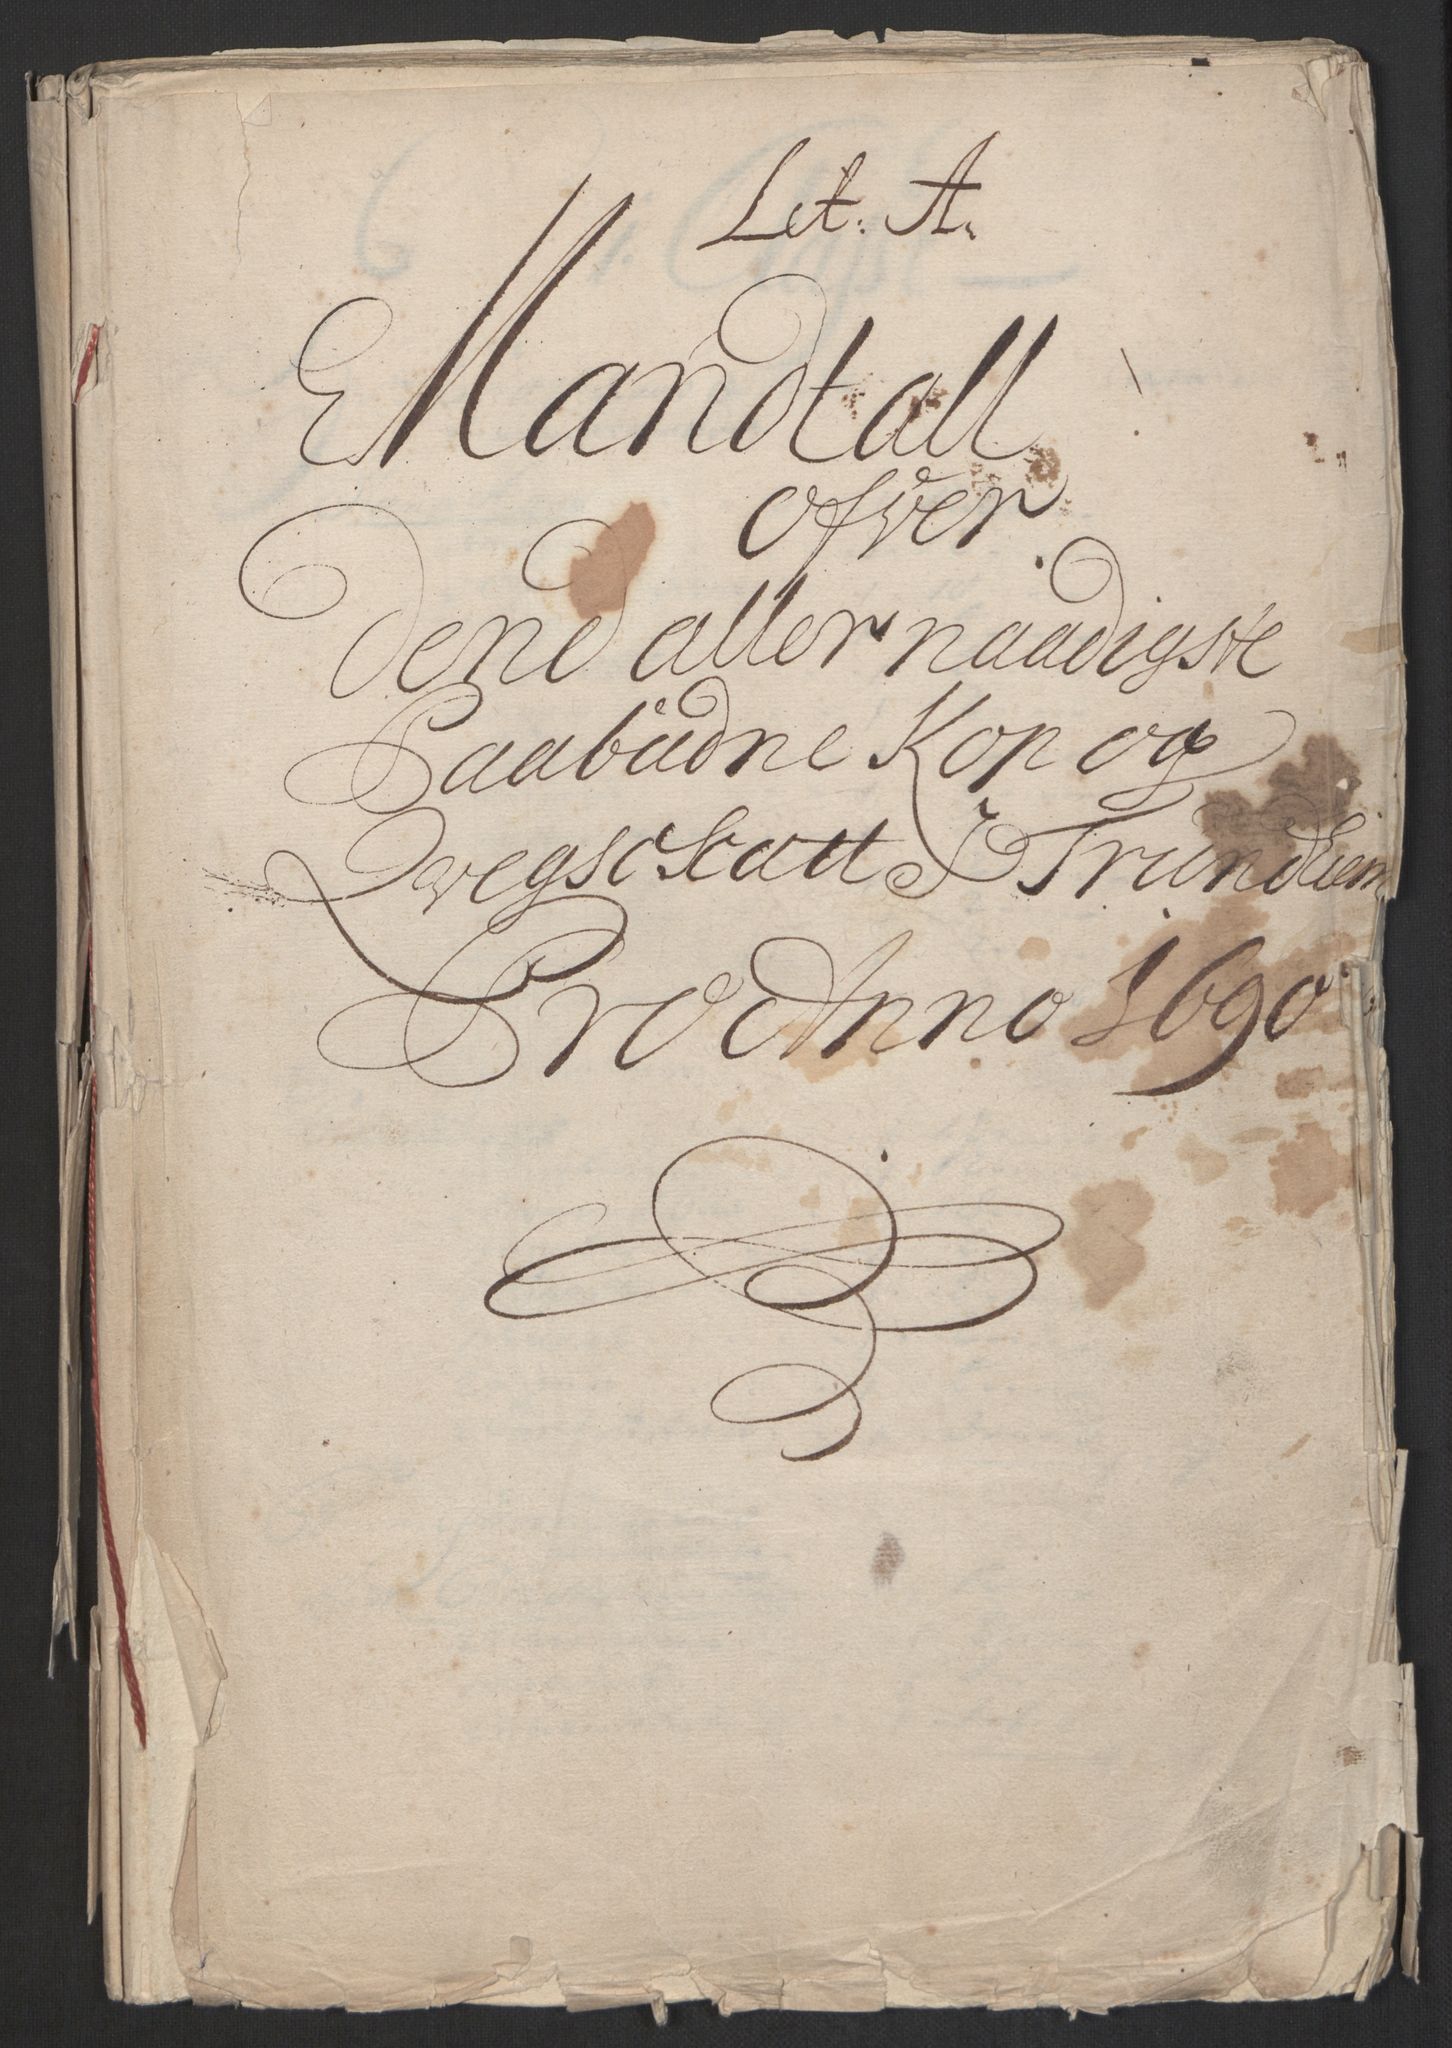 Let. A.
Mandtall
ofver
dend aller naadigste
Paabüdne Kop og
Qvegsckatt I Trundhiem
Pro Anno 1690